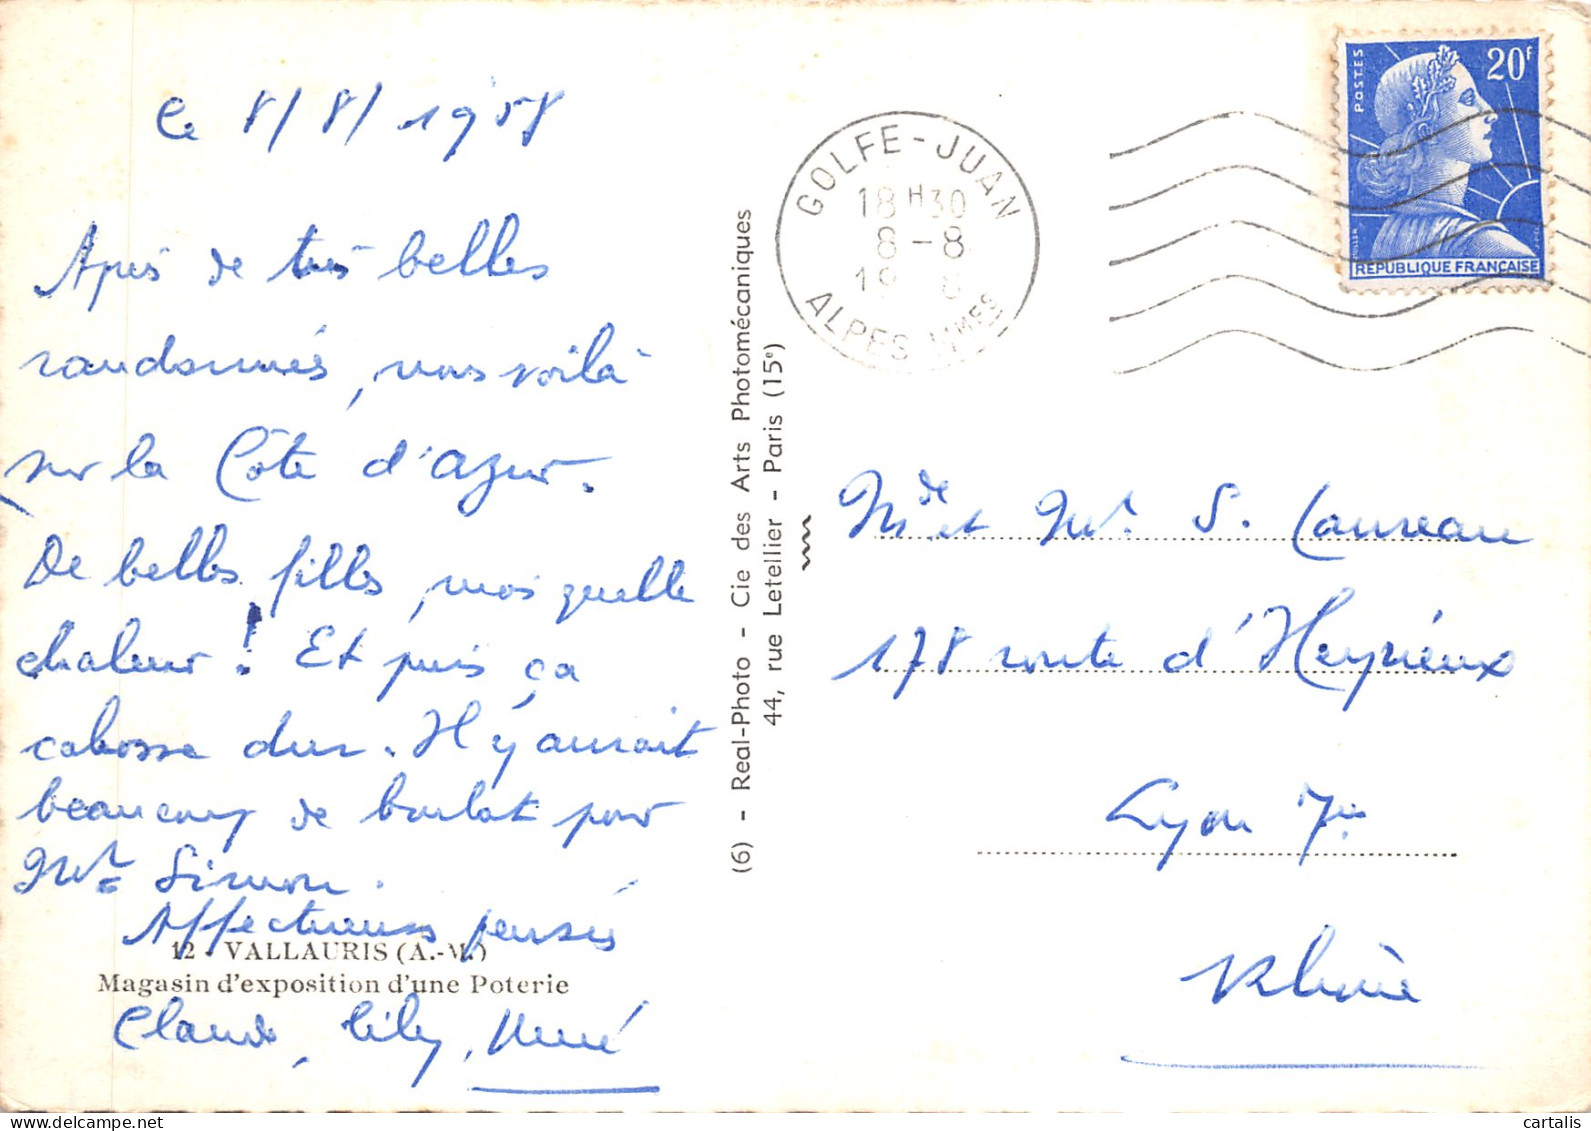 Le 8/8/1958
Après de très belles
randonnées, nous voilà
sur la Côte d'azur.
De belles filles, mais quelle
chaleur ! Et puis ça
cabosse dur. Il y aurait
beaucoup de boulot pour
Mr Simon.
Affectueuses pensées
12 - VALLAURIS (A.-M.)
Magasin d'exposition d'une Poterie
Claude, Lily, René
(6) - Real-Photo - Cie des Arts Photomécaniques
44, rue Letellier - Paris (15e)
GOLFE-JUAN
18H30
8-8
19 8
ALPES MMES
POSTES
20F
MULLER
REPUBLIQUE FRANÇAISE
Mde et Mr. S. Laureau
178 route d'Heyrieux
Lyon 7e
Rhône
cartalis